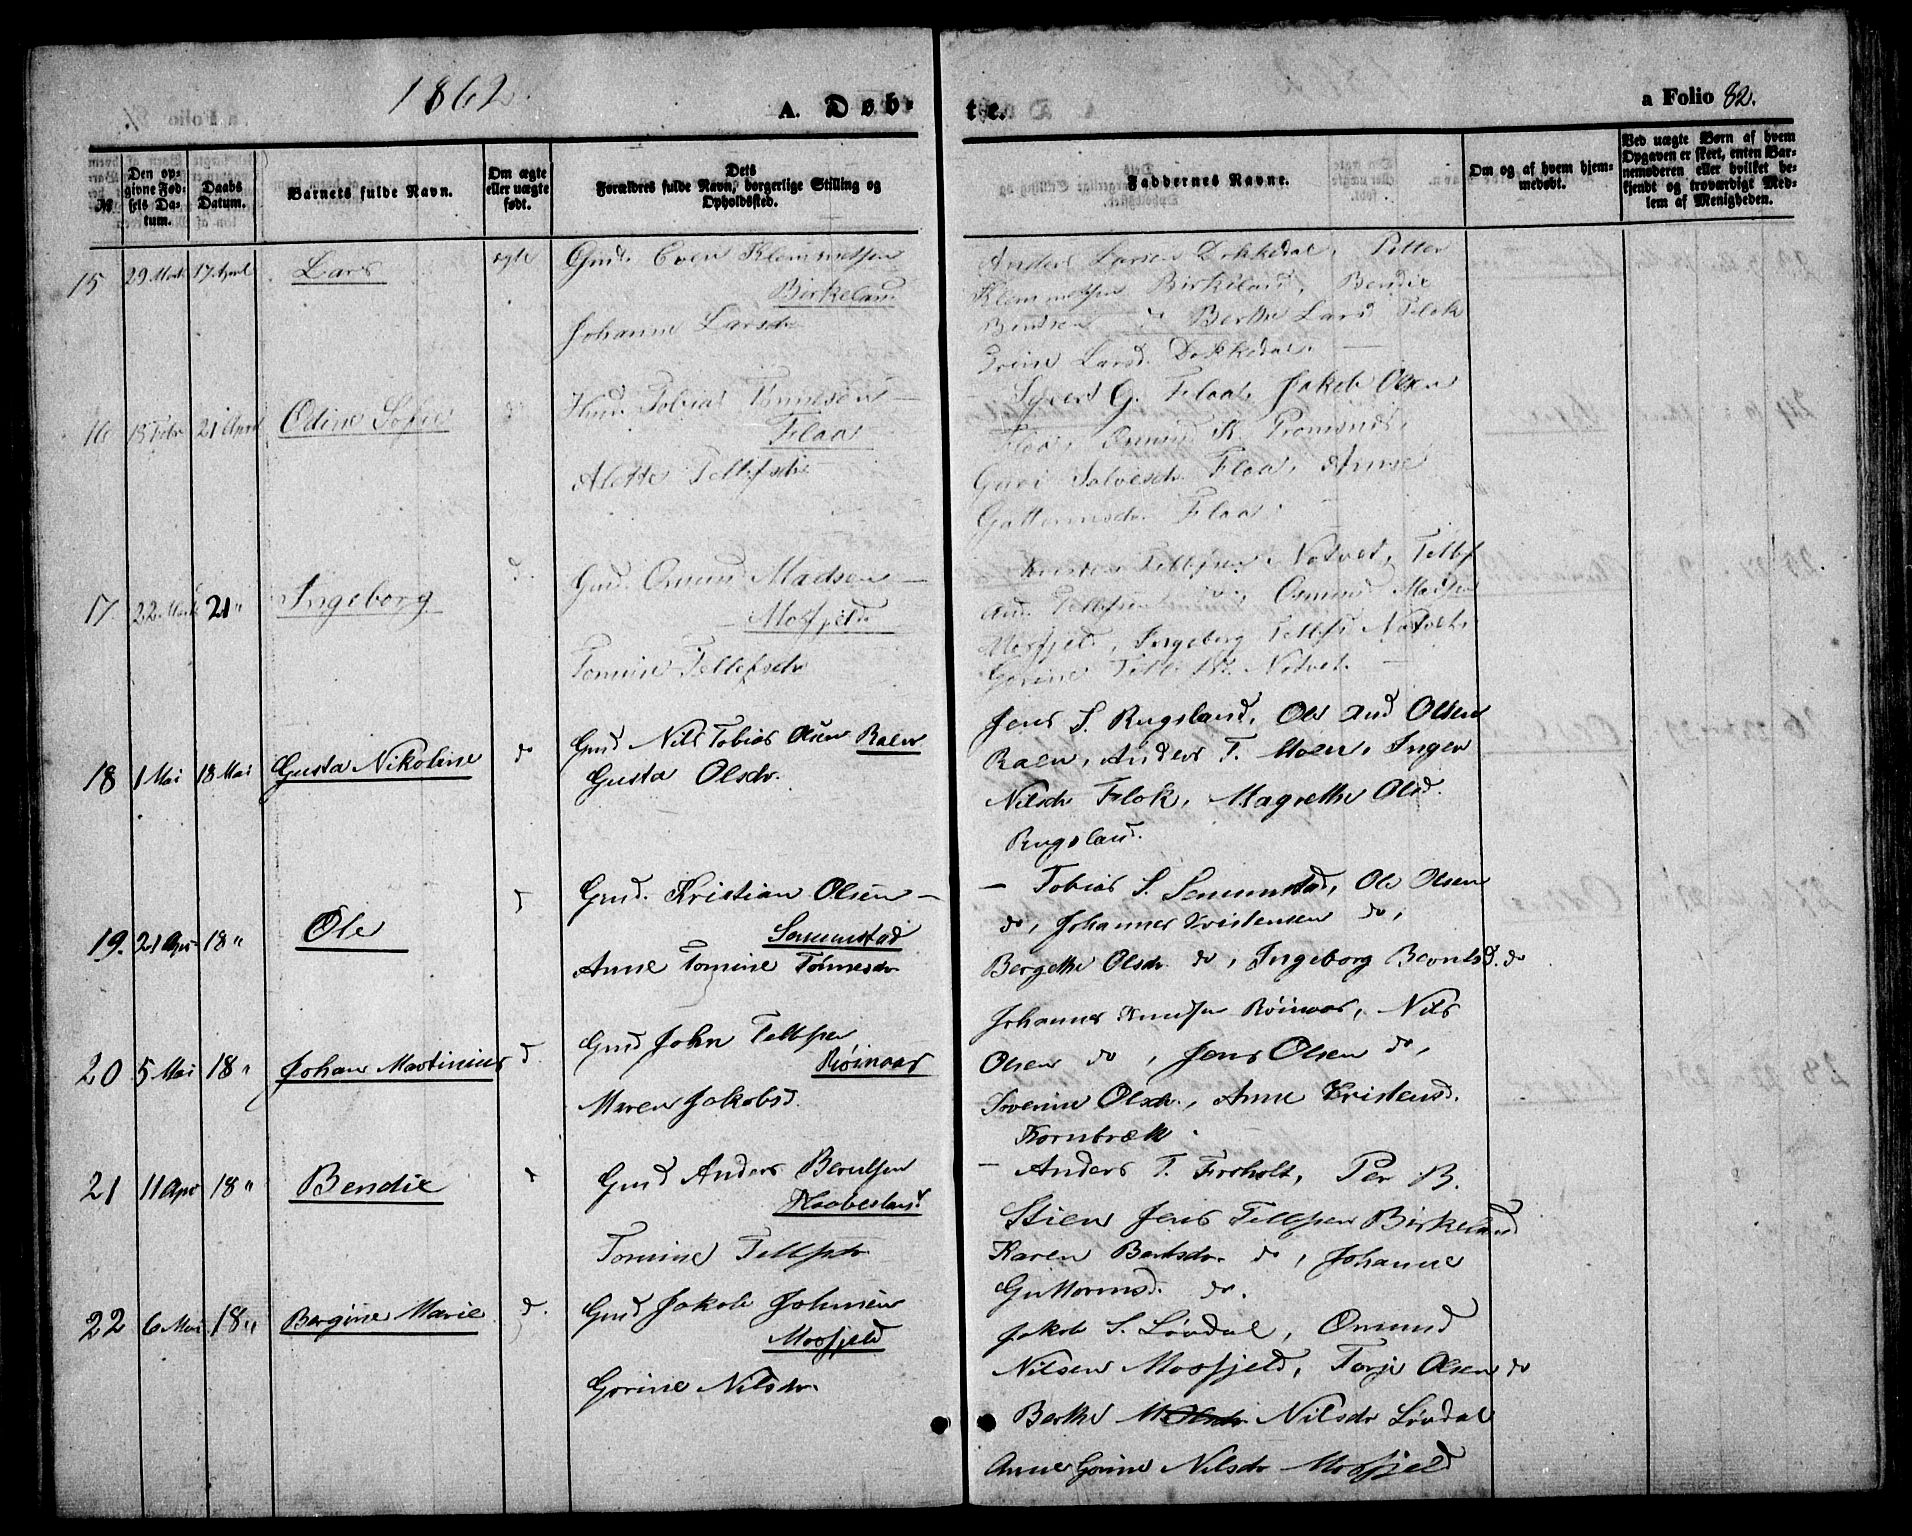 1862
A. Døb-
te.
a Folio 82.
№
Den op-
givne Fød-
sels Da-
tum.
Daabs
Datum.
Barnets fulde Navn.
Om ægte
eller uægte
født.
Dets
Forældres fulde Navn, borgerlige Stilling og
Opholdssted.
Faddernes Navne.
Om og af hvem hjem-
medøbt.
Ved uægte Børn af hvem
Opgaven er skeet, enten Bar-
nemoderen eller hvilket be-
kjendt og troværdigt Med-
lem af Menigheden.
15 29 Marts 17 April Lars ægte Gmd. Even Klemmetsen
Birkeland
Johanne Larsdr
Anders Larsen Dokkedal, Petter
Klemmetsen Birkeland, Bendie
Bendsen do Berthe Larsd Flok
Larsd. Dokkedal.
16 18 Febr 21 April Odine Sofie d Tobias Tønnesen
Flaa
Alette Tellefsdr
G. Flaa, Jakob Olsen
Flaa, Omund K.
Guri Salvesdr Flaa, Anne
Guttormsdr. Flaa.
17. 22 Marts 21 " Ingeborg d. Gmd. Omund Madsen
Mosfjeld
Tomine Tellefsdr
Tellefsen Natvet, Tellef
Tellefsen do, Osmund Madsen
Mosfjeld, Ingeborg Tellefsd Natvet,
Gorine Natvet.
18 1 Mai 18 Mai Gusta Nikoline do Gmd Nils Tobias Olsen Raen
Gusta Olsdr.
Jens S. Rugsland, Ole And Olsen
Raen, Anders T. Moen, Inger
Nilsdr Flok, Magrethe Olsd.
Rugsland.
19. 21 Apr 18 " Ole d Gmd. Kristian Olsen
Senumstad
Anne Tomine Tønnesdr
Tobias S. Senumstad, Ole Olsen
do, Johannes Kristensen do,
Bergethe Olsdr do, Ingeborg Berntsd. do
20 5 Mai 18 " Johan Martinius d. Gmd John Tellefsen
Røinaas
Maren Jakobsd.
Johannes Knudsen Røinaas, Nils
Olsen do, Jens Olsen do,
Severine Olsdr., Anne Kristensd.
Kornbræk.
21 11 Apr 18 " Bendie d Gmd Anders Berntsen
Haabesland
Tomine Tellefsdr
Anders T. Frøholt, Per B.
Stien Jens Tellefsen Birkeland
Karen Berntsdr do, Johanne
Guttormsd. do.
22 6 Mai 18 " Bergine Marie d. Gmd Jakob Johnsen
Mosfjeld
Gorine Nilsdr
Jakob S. Løvdal, Omund
Nilsen Mosfjeld, Torje Olsen do
Berthe M Olsdr Nilsdr Løvdal
Anne Gorine Nilsdr Mosfjeld